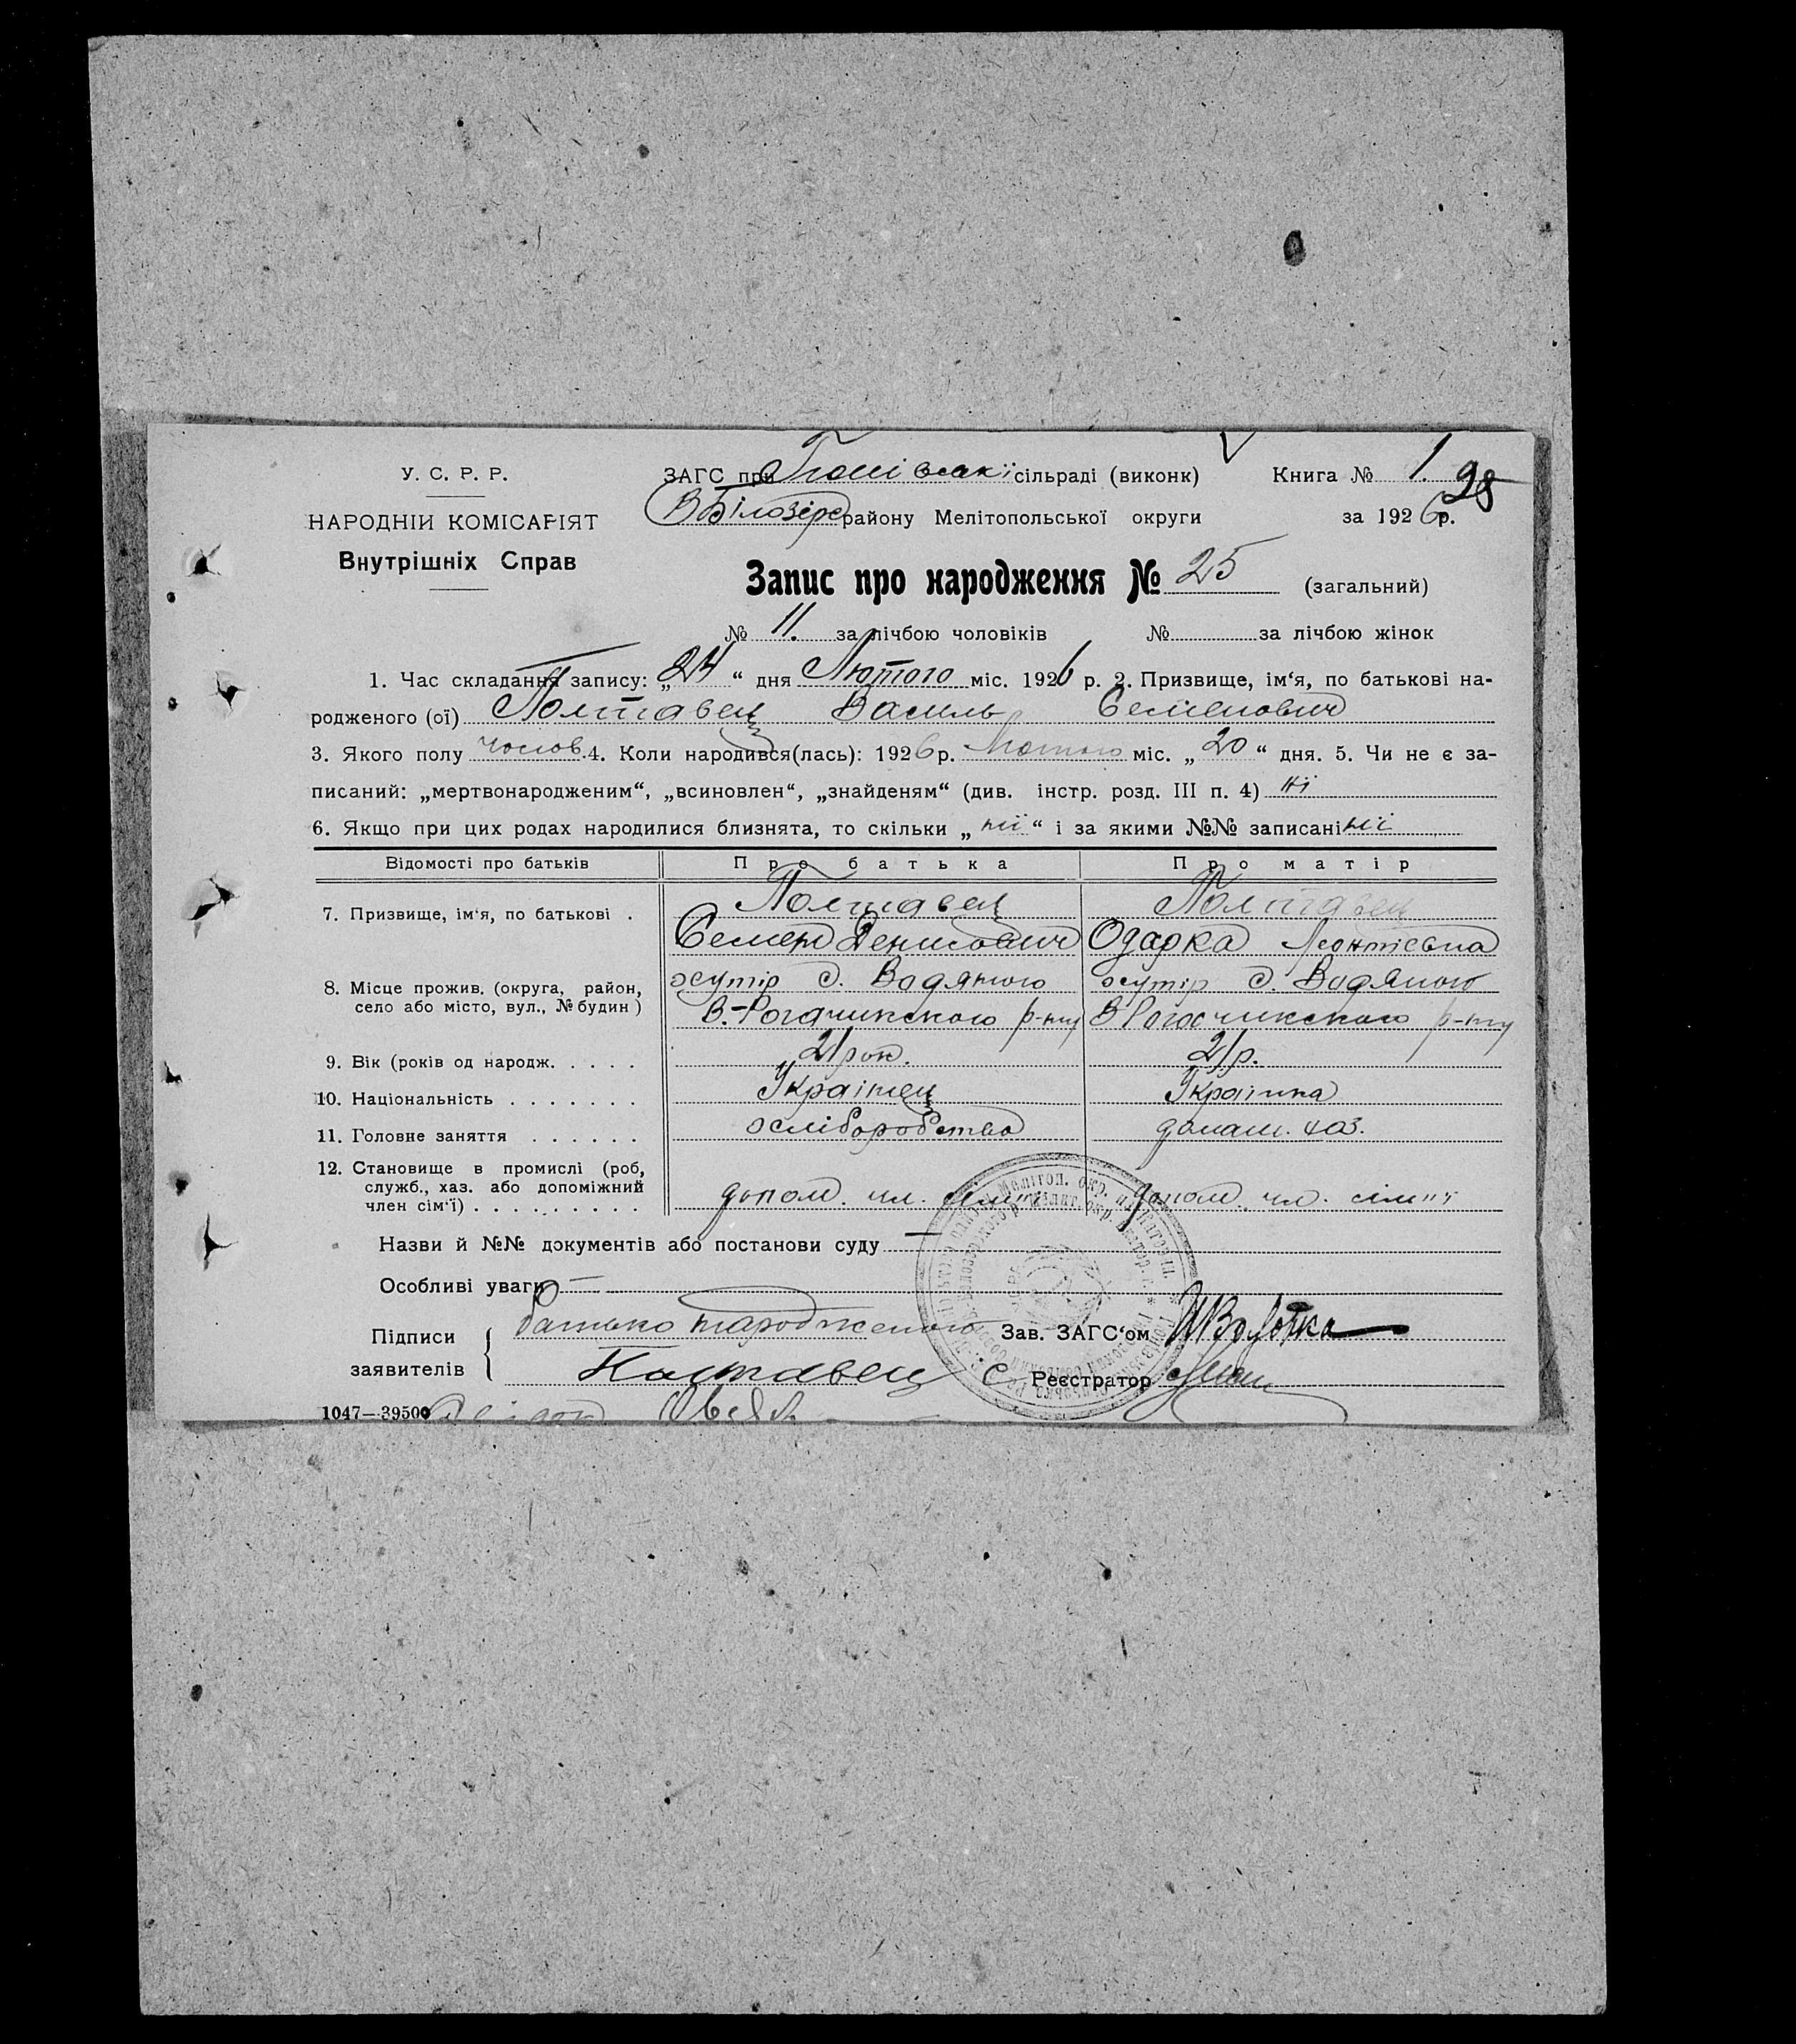 У. С. Р. Р.
НАРОДНІЙ КОМІСАРІЯТ
Внутрішніх Справ
ЗАГС при сільраді (виконк) Книга № 1. 28
В Білозірс району Мелітопольської округи за 1926 р.
Запис про народження № 25 (загальний)
№ 11. за лічбою чоловіків № за лічбою жінок
1. Час складання запису: „24“ дня Лютого міс. 1926 р. 2. Призвище, ім‘я, по батькові на-
родженого (ої) Полтавец Василь Семенович
3. Якого полу чолов. 4. Коли народився(лась): 1926 р. Лютого міс. „20“ дня. 5. Чи не є за-
писаний: „мертвонародженим“, „всиновлен“, „знайденям“ (див. інстр. розд. III п. 4) ні
6. Якщо при цих родах народилися близнята, то скільки „ні“ і за якими №№ записані ні
Відомості про батьків Про батька Про матір
7. Призвище, ім‘я, по батькові . Полтавец Полтавец
Семен Денисович Одарка Леонтієвна
8. Місце прожив. (округа, район, хутір д. Водяного хутір д. Водяного
село або місто, вул., № будин) В.-Рогачикского р-ну В Рогачикского р-ну
9. Вік (років од народж. . . . . 21 рок. 21 р.
10. Національність . . . . . . . Українец Українка
11. Головне заняття . . . . . . хліборобство домаш. хоз.
12. Становище в промислі (роб,
служб., хаз. або допоміжний
член сім‘ї) . . . . . . . . . допом. чл. сім'ї допом. чл. сім'ї
Назви й №№ документів або постанови суду —
Особливі уваги —
Підписи батько народженого Зав. ЗАГС‘ом
заявителів Полтавец С. Реєстратор
1047—39500